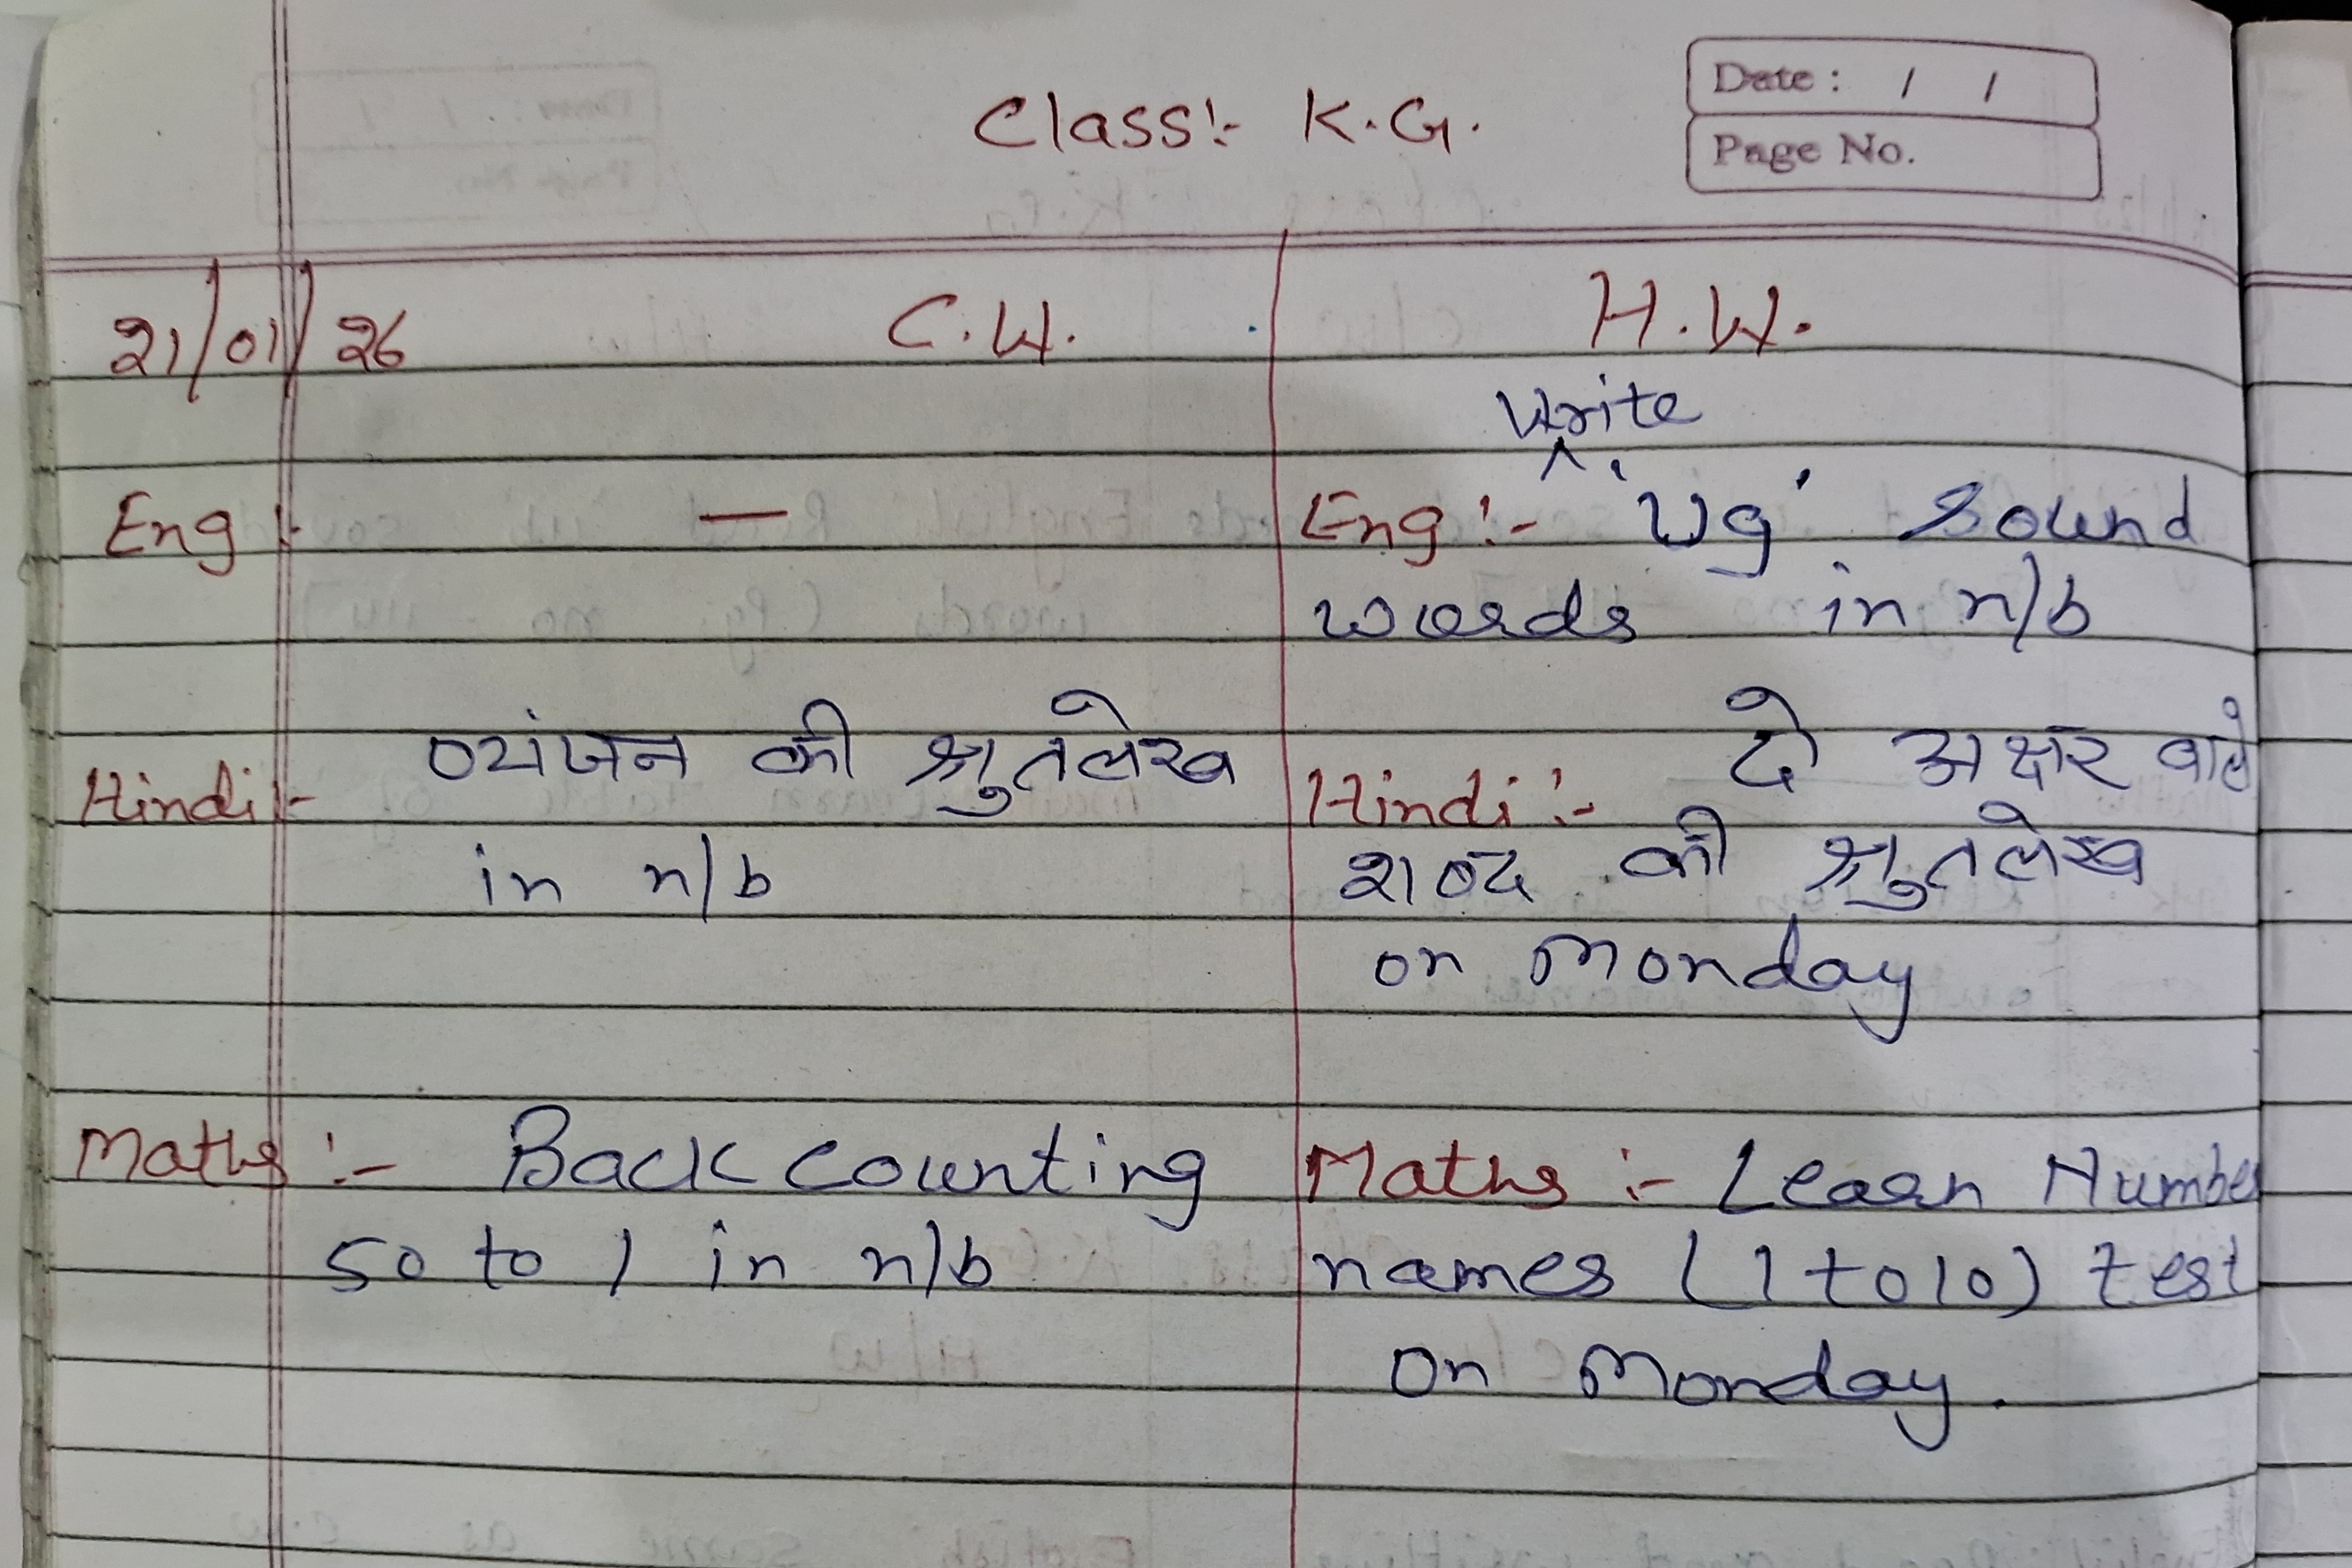 Class:- K.G.
Date : / /
Page No.
21/01/26 C.W. H.W.
Write
Eng:- — Eng:- 'Ug' Sound
words in n/b
Hindi:- व्यंजन की श्रुतलेख Hindi:- दो अक्षर वाले
in n/b शब्द की श्रुतलेख
on Monday
Maths:- Back counting Maths:- Learn Number
50 to 1 in n/b names (1 to 10) test
on Monday.